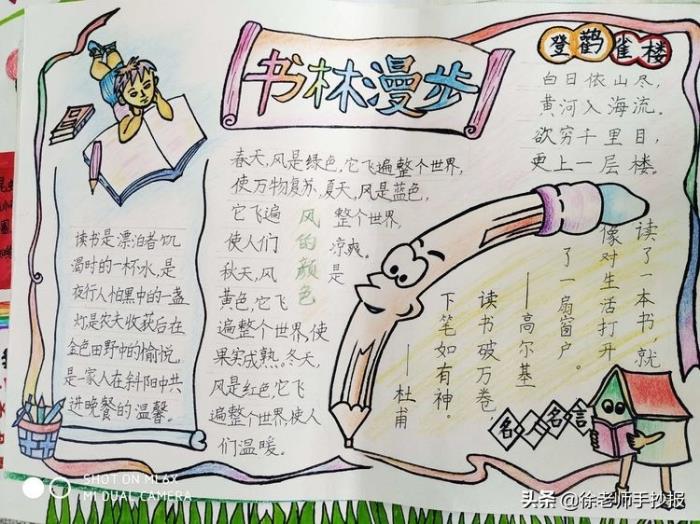 书林漫步
登鹳雀楼
白日依山尽,
黄河入海流。
欲穷千里目,
更上一层楼。
春天,风是绿色,它飞遍整个世界,
使万物复苏,夏天,风是蓝色,
它飞遍 整个世界,
使人们 凉爽。
秋天,风 是
黄色,它飞
遍整个世界,使
果实成熟。冬天,
风是红色,它飞
遍整个世界,使人
们温暖。
风的颜色
读书是漂泊者饥
渴时的一杯水,是
夜行人怕黑中的一盏
灯是农夫收获后在
金色田野中的愉悦,
是一家人在斜阳中共
进晚餐的温馨。
读了一本书,就
像对生活打开
了一扇窗户。
——高尔基
读书破万卷,
下笔如有神。
——杜甫
名人名言
SHOT ON MI 6X
MI DUAL CAMERA
头条 @徐老师手抄报